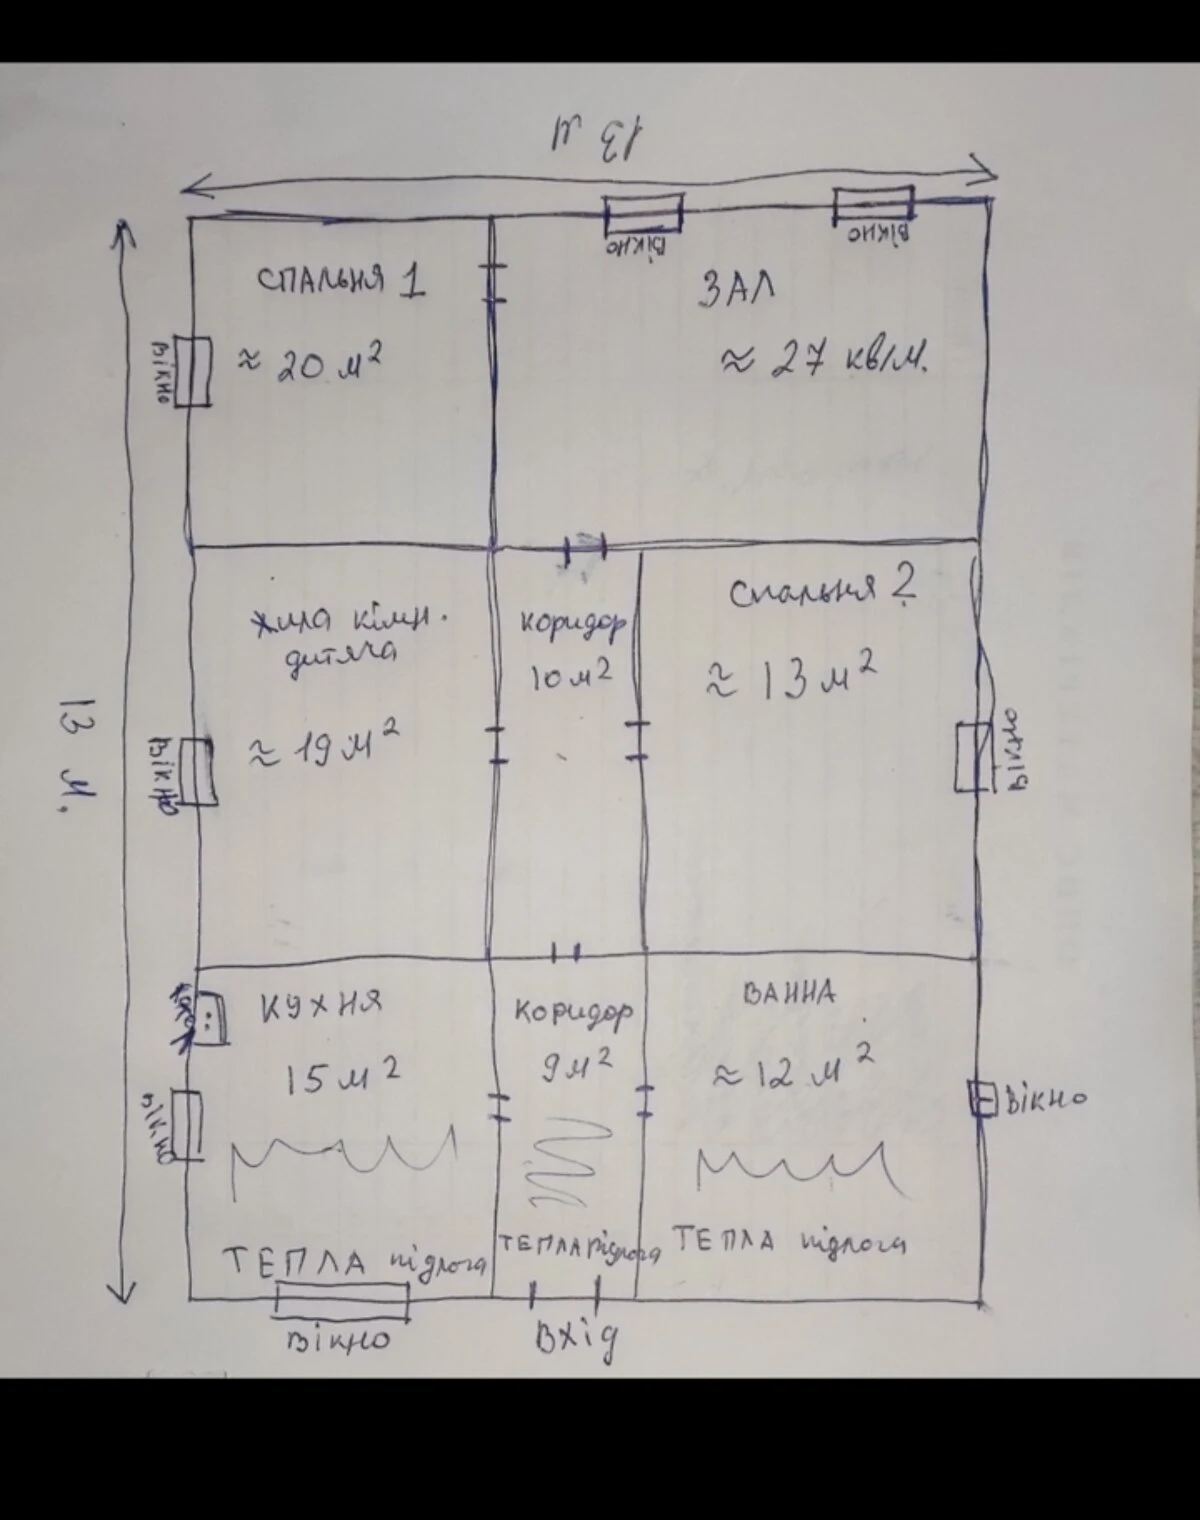 13 м
вікно
вікно
СПАЛЬНЯ 1
≈ 20 м²
ЗАЛ
≈ 27 кв/м.
вікно
жила кімн.
дитяча
≈ 19 м²
коридор
10 м²
Спальня 2
≈ 13 м²
13 м.
вікно
вікно
КУХНЯ
15 м²
коридор
9 м²
ВАННА
≈ 12 м²
вікно
вікно
ТЕПЛА підлога
ТЕПЛА підлога
ТЕПЛА підлога
вікно
вхід